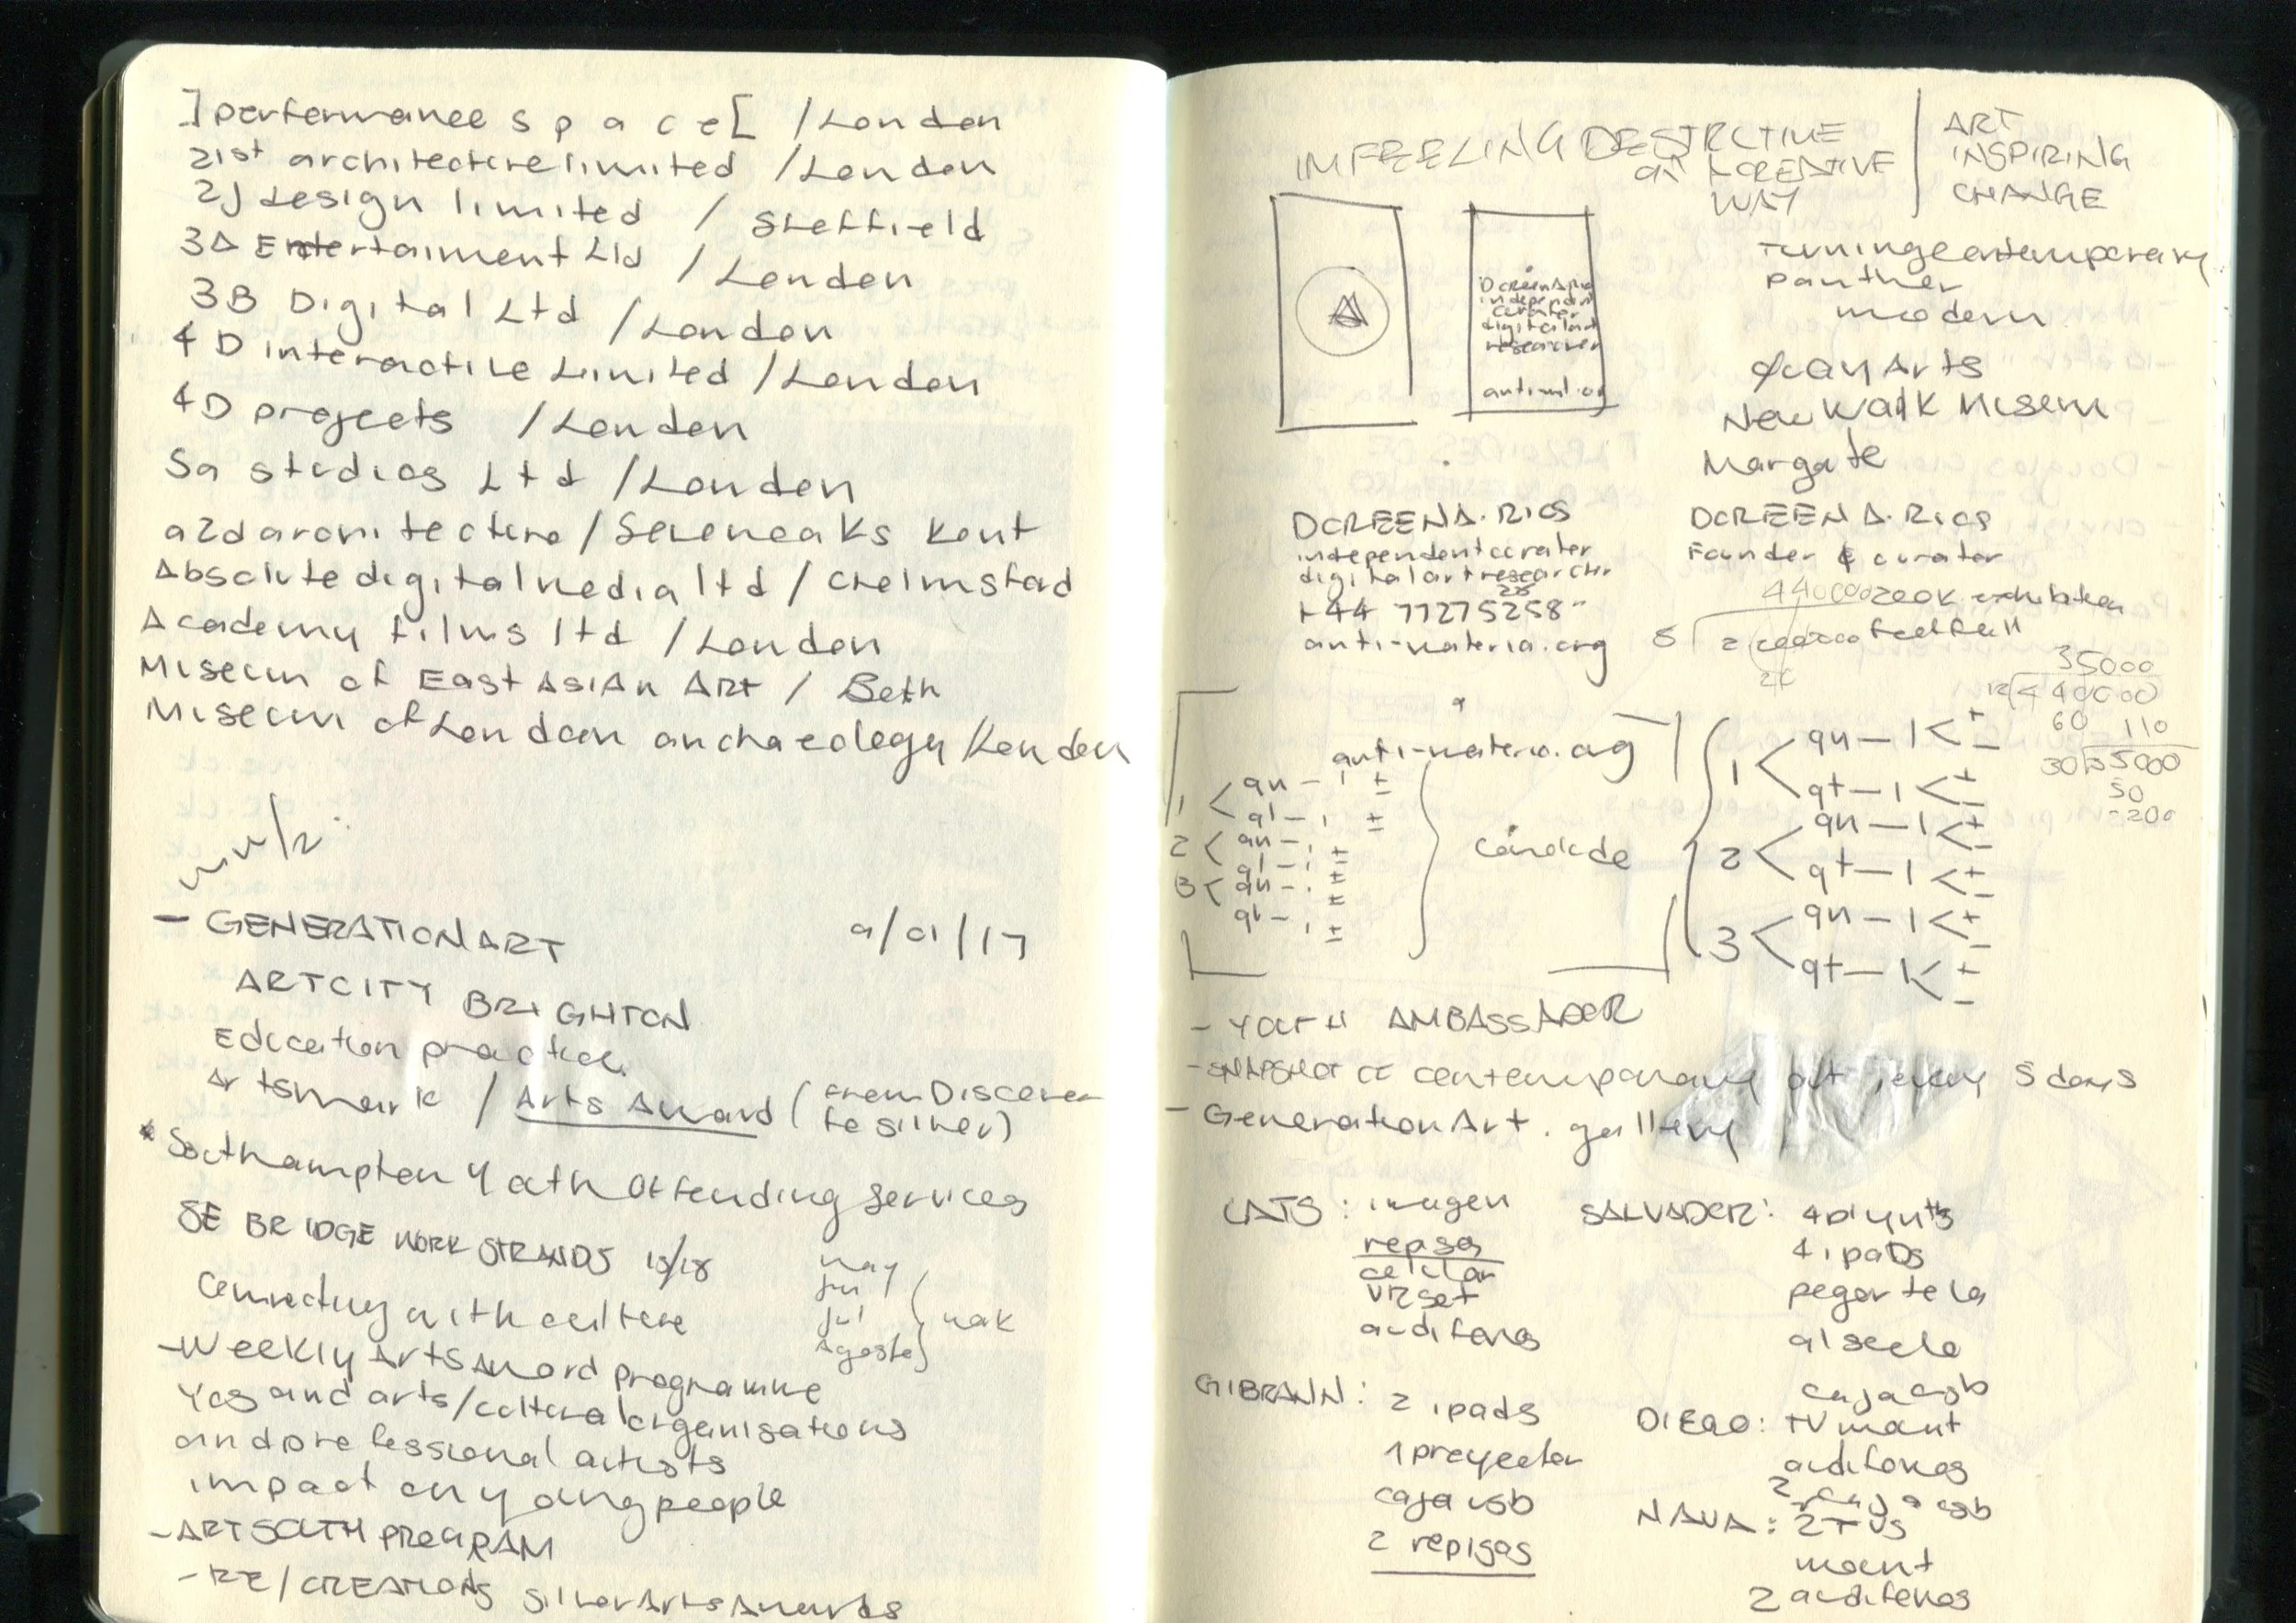 ]performance s p a c e[ /London
21st architecture limited /London
2J design limited / Sheffield
3D Entertaiment Ltd / London
3B Digital Ltd /London
4D interactive Limited /London
4D projects /London
5a studios Ltd /London
a2darchitecture / Sevenoaks Kent
Absolute digital media ltd / Chelmsford
Academy films ltd /London
Museum of East Asian Art / Bath
Museum of London archaeology /London
- GENERATION ART 9/01/17
ARTCITY BRIGHTON
Education practice
Artsmark / Arts Award (From Discover
to silver)
* Southampton Youth Offending Services
SE BRIDGE WORK STRANDS 15/18
Connecting with culture
may
jun
jul
Agosto
- Weekly Arts Award programme
Yos and arts/cultural organisations
and professional artists
impact on young people
- ART SOUTH PROGRAM
- RE/CREATIONS Silver Arts Awards
IM FEELING DESTRCTIVE
CREATIVE
WAY
ART
INSPIRING
CHANGE
Turning contemporary
panther
modern
Quay Arts
New Walk Museum
Margate
DOREEN A. RIOS
independent
curator
digital art
researcher
DOREEN A. RIOS
independent curator
digital art researcher
anti-materia.org
DOREEN A. RIOS
Founder & curator
44000 200k exhibition
footfall
35000
12 440000
60 110
30 35000
50
200
anti-materia.org
1 qn - 1 ±
ql - 1 ±
2 qn - 1 ±
ql - 1 ±
3 qn - 1 ±
ql - 1 ±
1 < qn - 1 < + -
qt - 1 < + -
2 < qn - 1 < + -
qt - 1 < + -
3 < qn - 1 < + -
qt - 1 < + -
- YOUTH AMBASSADOR
- SNAPSHOT OF contemporary art, every 5 days
- Generation Art. gallery
CATS: imagen
repisa
celular
VR set
audifonos
SALVADOR: 4 plynths
4 ipads
pegar tela
al suelo
GIBRANN: 2 ipads
1 proyector
caja usb
2 repisas
caja usb
DIEGO: TV mount
audifonos
2 caja usb
NAVA: 2 TVs
mount
2 audifonos